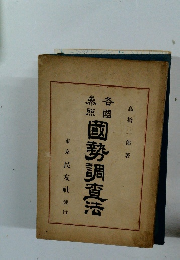 高橋二郎著
各國
參照
國勢調查法
東京 民友社 發行